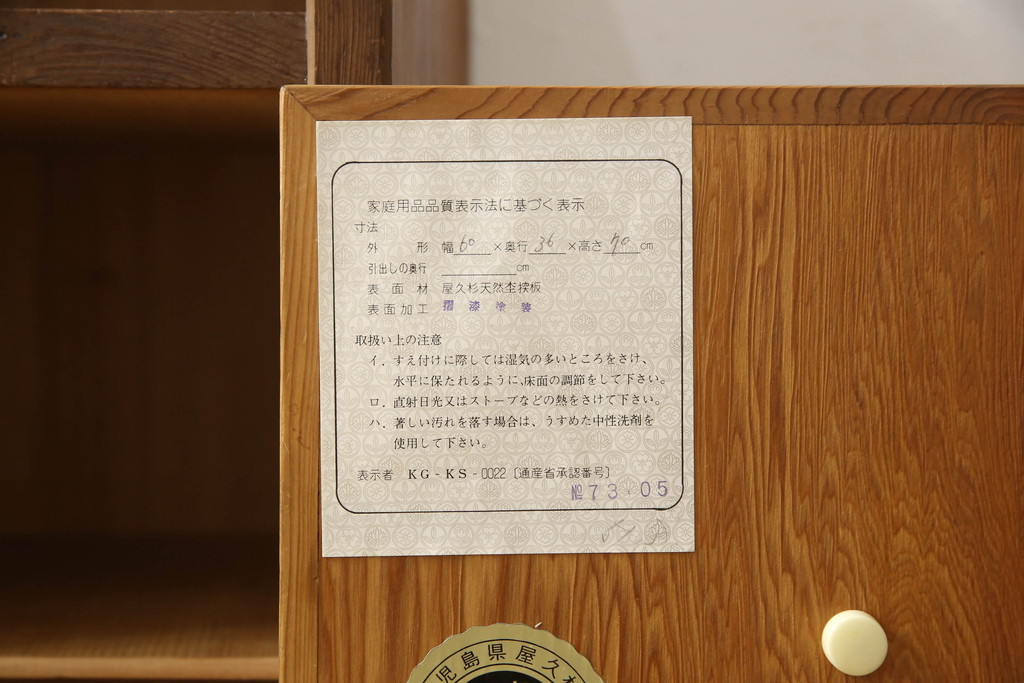 家庭用品品質表示法に基づく表示
寸法
外形 幅60×奥行36×高さ70cm
引出しの奥行 cm
表面材 屋久杉天然杢挾板
表面加工 摺漆塗装
取扱い上の注意
イ. すえ付けに際しては湿気の多いところをさけ、
水平に保たれるように、床面の調節をして下さい。
ロ. 直射日光又はストーブなどの熱をさけて下さい。
ハ. 著しい汚れを落す場合は、うすめた中性洗剤を
使用して下さい。
表示者 KG-KS-0022〔通産省承認番号〕
№73.05
児島県屋久杉